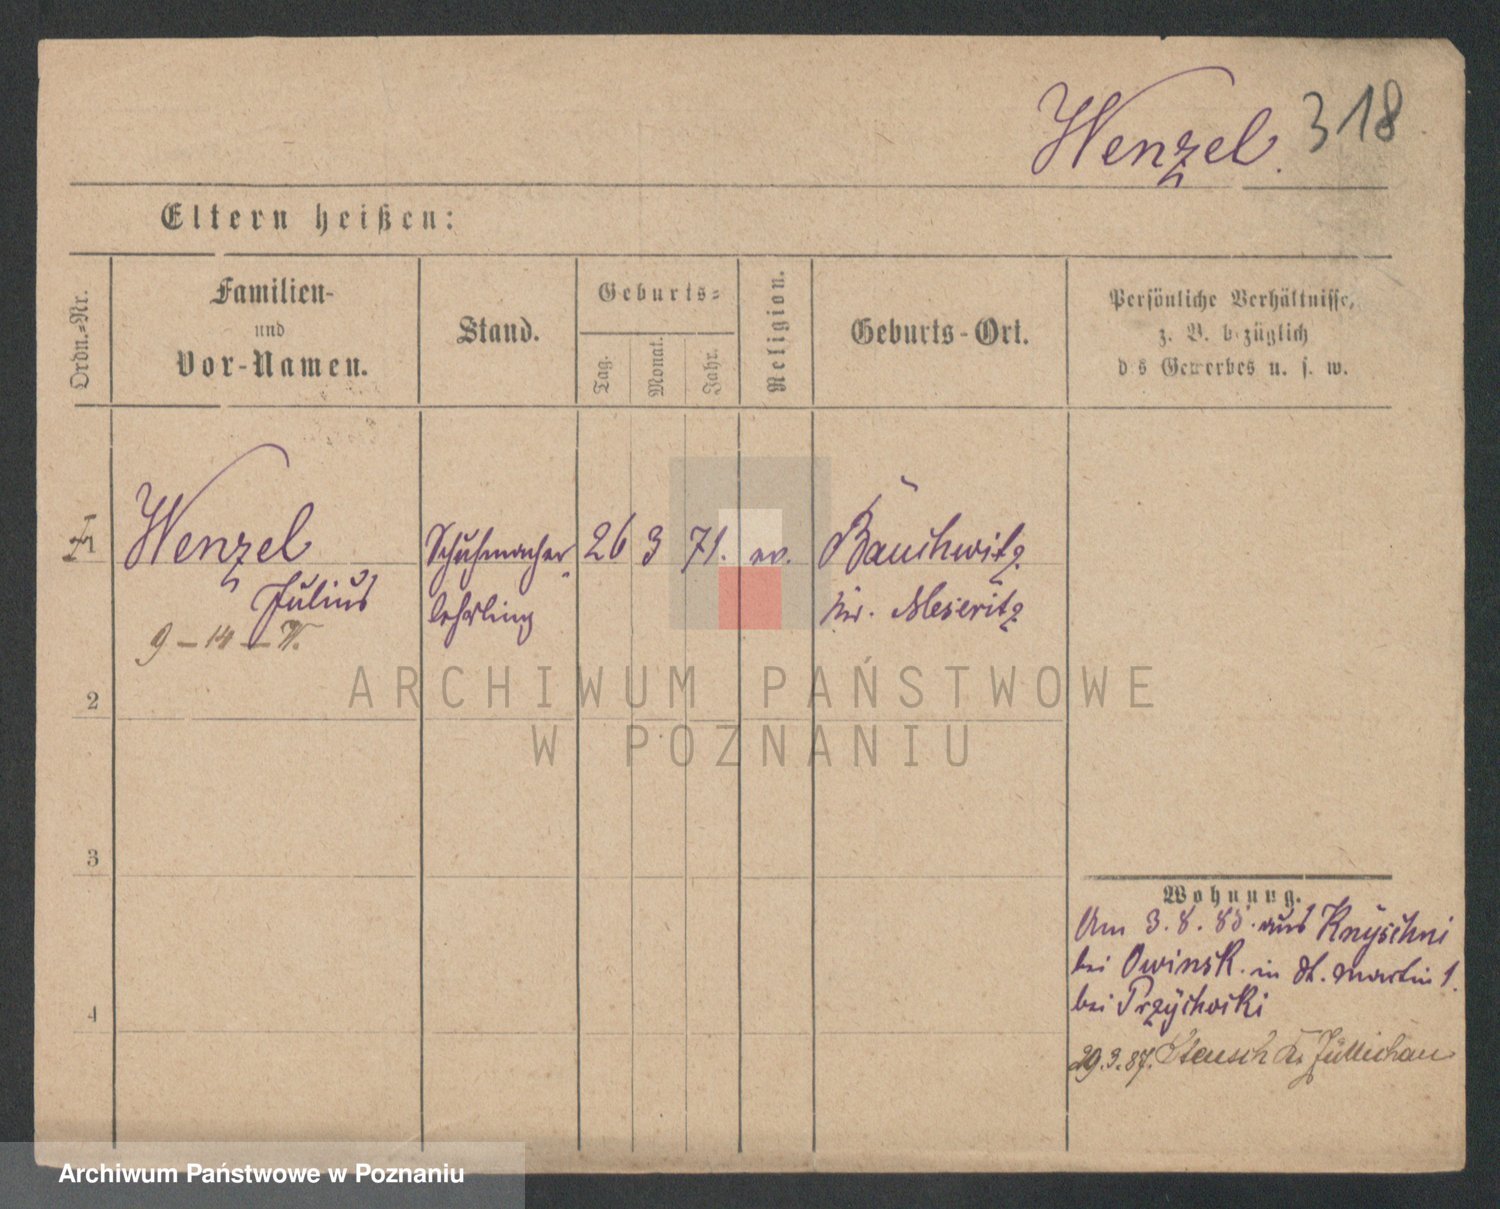 Wenzel. 318
Eltern heißen:
Ordn.-Nr.
Familien-
und
Vor-Namen.
Stand.
Geburts-
Tag.
Monat.
Jahr.
Religion.
Geburts-Ort.
Persönliche Verhältnisse,
z. B. bezüglich
des Gewerbes u. s. w.
1
Wenzel
Julius
Schuhmacher
lehrling
26 3 71. ev.
Bauchwitz
Kr. Meseritz
9 - 14 - V.
2
ARCHIWUM PAŃSTWOWE
W POZNANIU
3
4
Wohnung.
Am 3. 8. 85. aus Knyschni
bei Owinsk. in St. Martin 1.
bei Przychocki
29.3.87. Kr. Züllichau
Archiwum Państwowe w Poznaniu